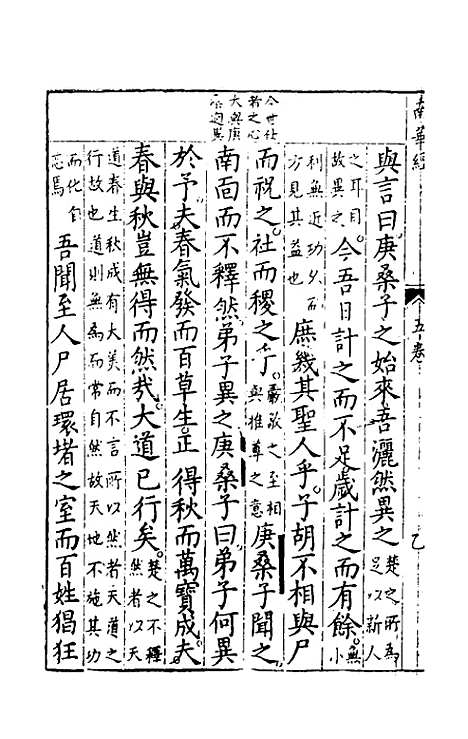 南華經
五卷
乙
與言曰庚桑子之始來吾灑然異之楚之所為
足以新人
之耳目
故異之今吾日計之而不足歲計之而有餘無
小
利無近功久而
方見其益也庶幾其聖人乎子胡不相與尸
而祝之社而稷之乎嚴敬之至相
與推尊之意庚桑子聞之
南面而不釋然弟子異之庚桑子曰弟子何異
於予夫春氣發而百草生正得秋而萬寶成夫
春與秋豈無得而然哉大道已行矣楚之不釋
然者以天
道春生秋成有大美而不言所以然者天道之
行故也道則無為而常自然故天地不施其功
而化自
忘焉吾聞至人尸居環堵之室而百姓猖狂
今世仕
者之心
大與庚
迥異